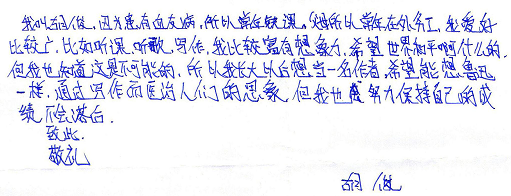 我叫胡俊，因为患有血友病，所以常年缺课，妈所以常年在外务工，我爱好
比较广，比如听课，听歌，写作，我比较富有想象力，希望世界和平啊什么的，
但我也知道这是不可能的，所以我长大以后想当一名作者，希望能想鲁迅
一样，通过写作而医治人们的思象，但我也 努力保持自己的成
绩不会滞后。
致此
敬礼
胡俊